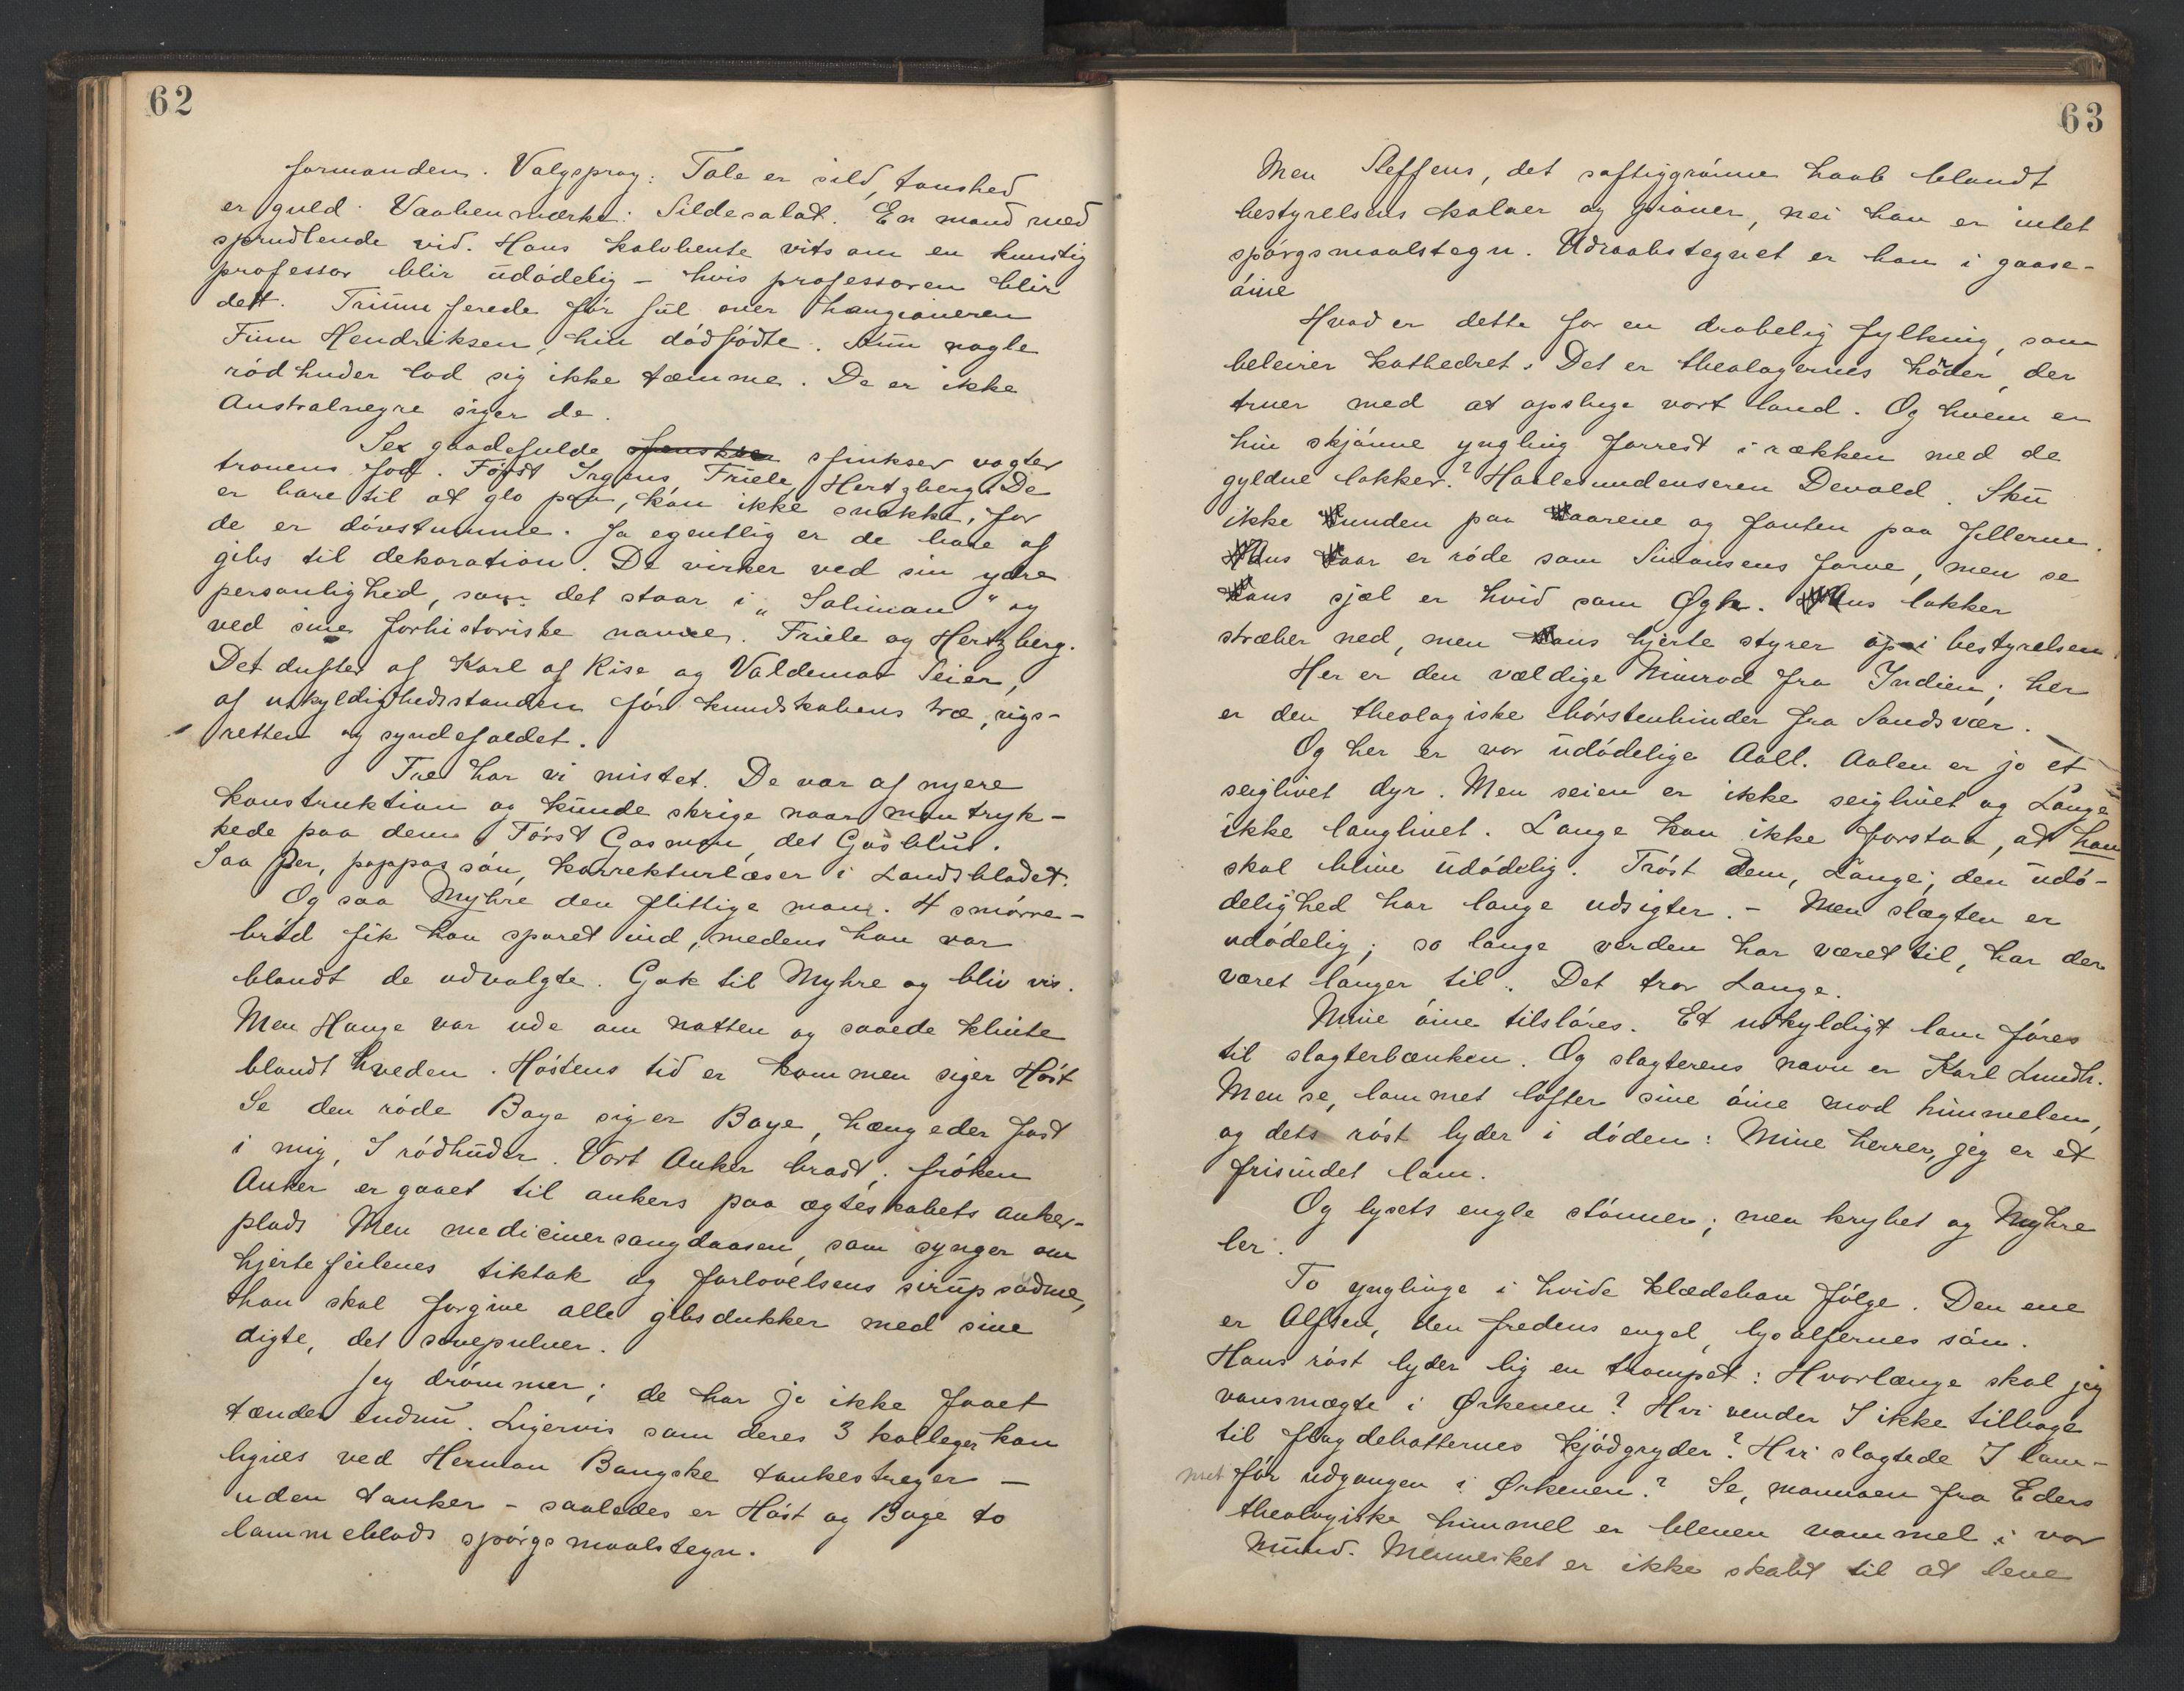 62
formanden. Valgsprog: Tale er sild, taushed
er guld. Vaabenmærke: Sildesalat. En mand med
sprudlende vid. Hans halvbente vits om en kunstig
professor blir udødelig – hvis professoren blir
det. Triumferede før jul over haugianeren
Finn Hendriksen, hin dødfødte. Kun nogle
rødhuder lod sig ikke tæmme. De er ikke
Australnegre siger de.
Sex gaadefulde sfinkser vogter
tronens fod. Først Irgens Friele, Hertzberg. De
er bare til at glo paa, kan ikke snakke, for
de er døvstumme. Ja egentlig er de bare af
gibs til dekoration. De virker ved sin ydre
personlighed, som det staar i „Soliman" og
ved sine forhistoriske navne. Friele og Hertzberg.
Det dufter af Karl af Rise og Valdemar Seier,
af uskyldighedsstanden før kundskabens træ, rigs-
retten og syndefaldet.
Tre har vi mistet. De var af nyere
konstruktion og kunde skrige naar man tryk-
kede paa dem. Først Gasman, det Gasblus.
Saa Per, pappas søn, korrekturlæser i Landsbladet.
Og saa Myhre den flittige maur. 4 smørre-
brød fik han sparet ind, medens han var
blandt de udvalgte. Gak til Myhre og bliv vis.
Men Hauge var ude om natten og saaede klinte
blandt hveden. Høstens tid er kommen siger Høst
Se den røde Baye siger Baye, hæng eder fast
i mig, I rødhuder. Vort Anker brast; frøken
Anker er gaaet til ankers paa ægteskabets anker-
plads Men medicinersangdaasen, som synger om
hjertefeilenes tiktak og forlovelsens sirupsødme,
han skal forgive alle gibsdukker med sine
digte, det sovepulver.
Jeg drømmer; de har jo ikke faaet
tænder endnu. Ligervis som deres 3 kolleger kan
lignes ved Herman Bangske tankestreger –
uden tanker – saaledes er Høst og Baye to
lammeblads spørgsmaalstegn.
63
Men Steffens, det saftiggrønne haab blandt
bestyrelsens kalver og pioner, nei han er intet
spørgsmaalstegn. Udraabstegnet er han i gaase-
øine
Hvad er dette for en drabelig fylking, som
beleirer kathedret? Det er theologernes horder, der
truer med at opsluge vort land. Og hvem er
hin skjønne yngling forrest i rækken med de
gyldne lokker? Aalesundenseren Devold. Sku
ikke hunden paa haarene og fanten paa fillerne.
Hans haar er røde som Simonsens farve, men se
hans sjæl er hvid som Øgh. Hans lokker
stræber ned, men hans hjerte styrer op i bestyrelsen.
Her er den vældige Nimrod fra Indien; her
er den theologiske børstenbinder fra Sandsvær.
Og her er vor udødelige Aall. Aalen er jo et
seiglivet dyr. Men seien er ikke seiglivet og Lange
ikke langlivet. Lange kan ikke forstaa, at han
skal blive udødelig. Trøst Dem, Lange; den udø-
delighed har lange udsigter. – Men slægten er
udødelig; so lange verden har været til, har der
været langer til. Det tror Lange.
Mine øine tilsløres. Et uskyldigt lam føres
til slagterbænken. Og slagterens navn er Karl Lundh.
Men se, lammet løfter sine øine mod himmelen,
og dets røst lyder i døden: Mine herrer, jeg er et
frisindet lam.
Og lysets engle stønner; men krybet og Myhre
ler.
To ynglinge i hvide klædebon følge. Den ene
er Alfsen, den fredens engel, lysalfernes søn.
Hans røst lyder lig en trompet: Hvorlænge skal jeg
vansmægte i Ørkenen? Hvi vender I ikke tilbage
til flagdebatternes kjødgryder? Hvi slagtede I lam-
met før udgangen i Ørkenen? Se, mannaen fra Eders
theologiske himmel er bleven vammel i vor
mund. Mennesket er ikke skabt til at leve